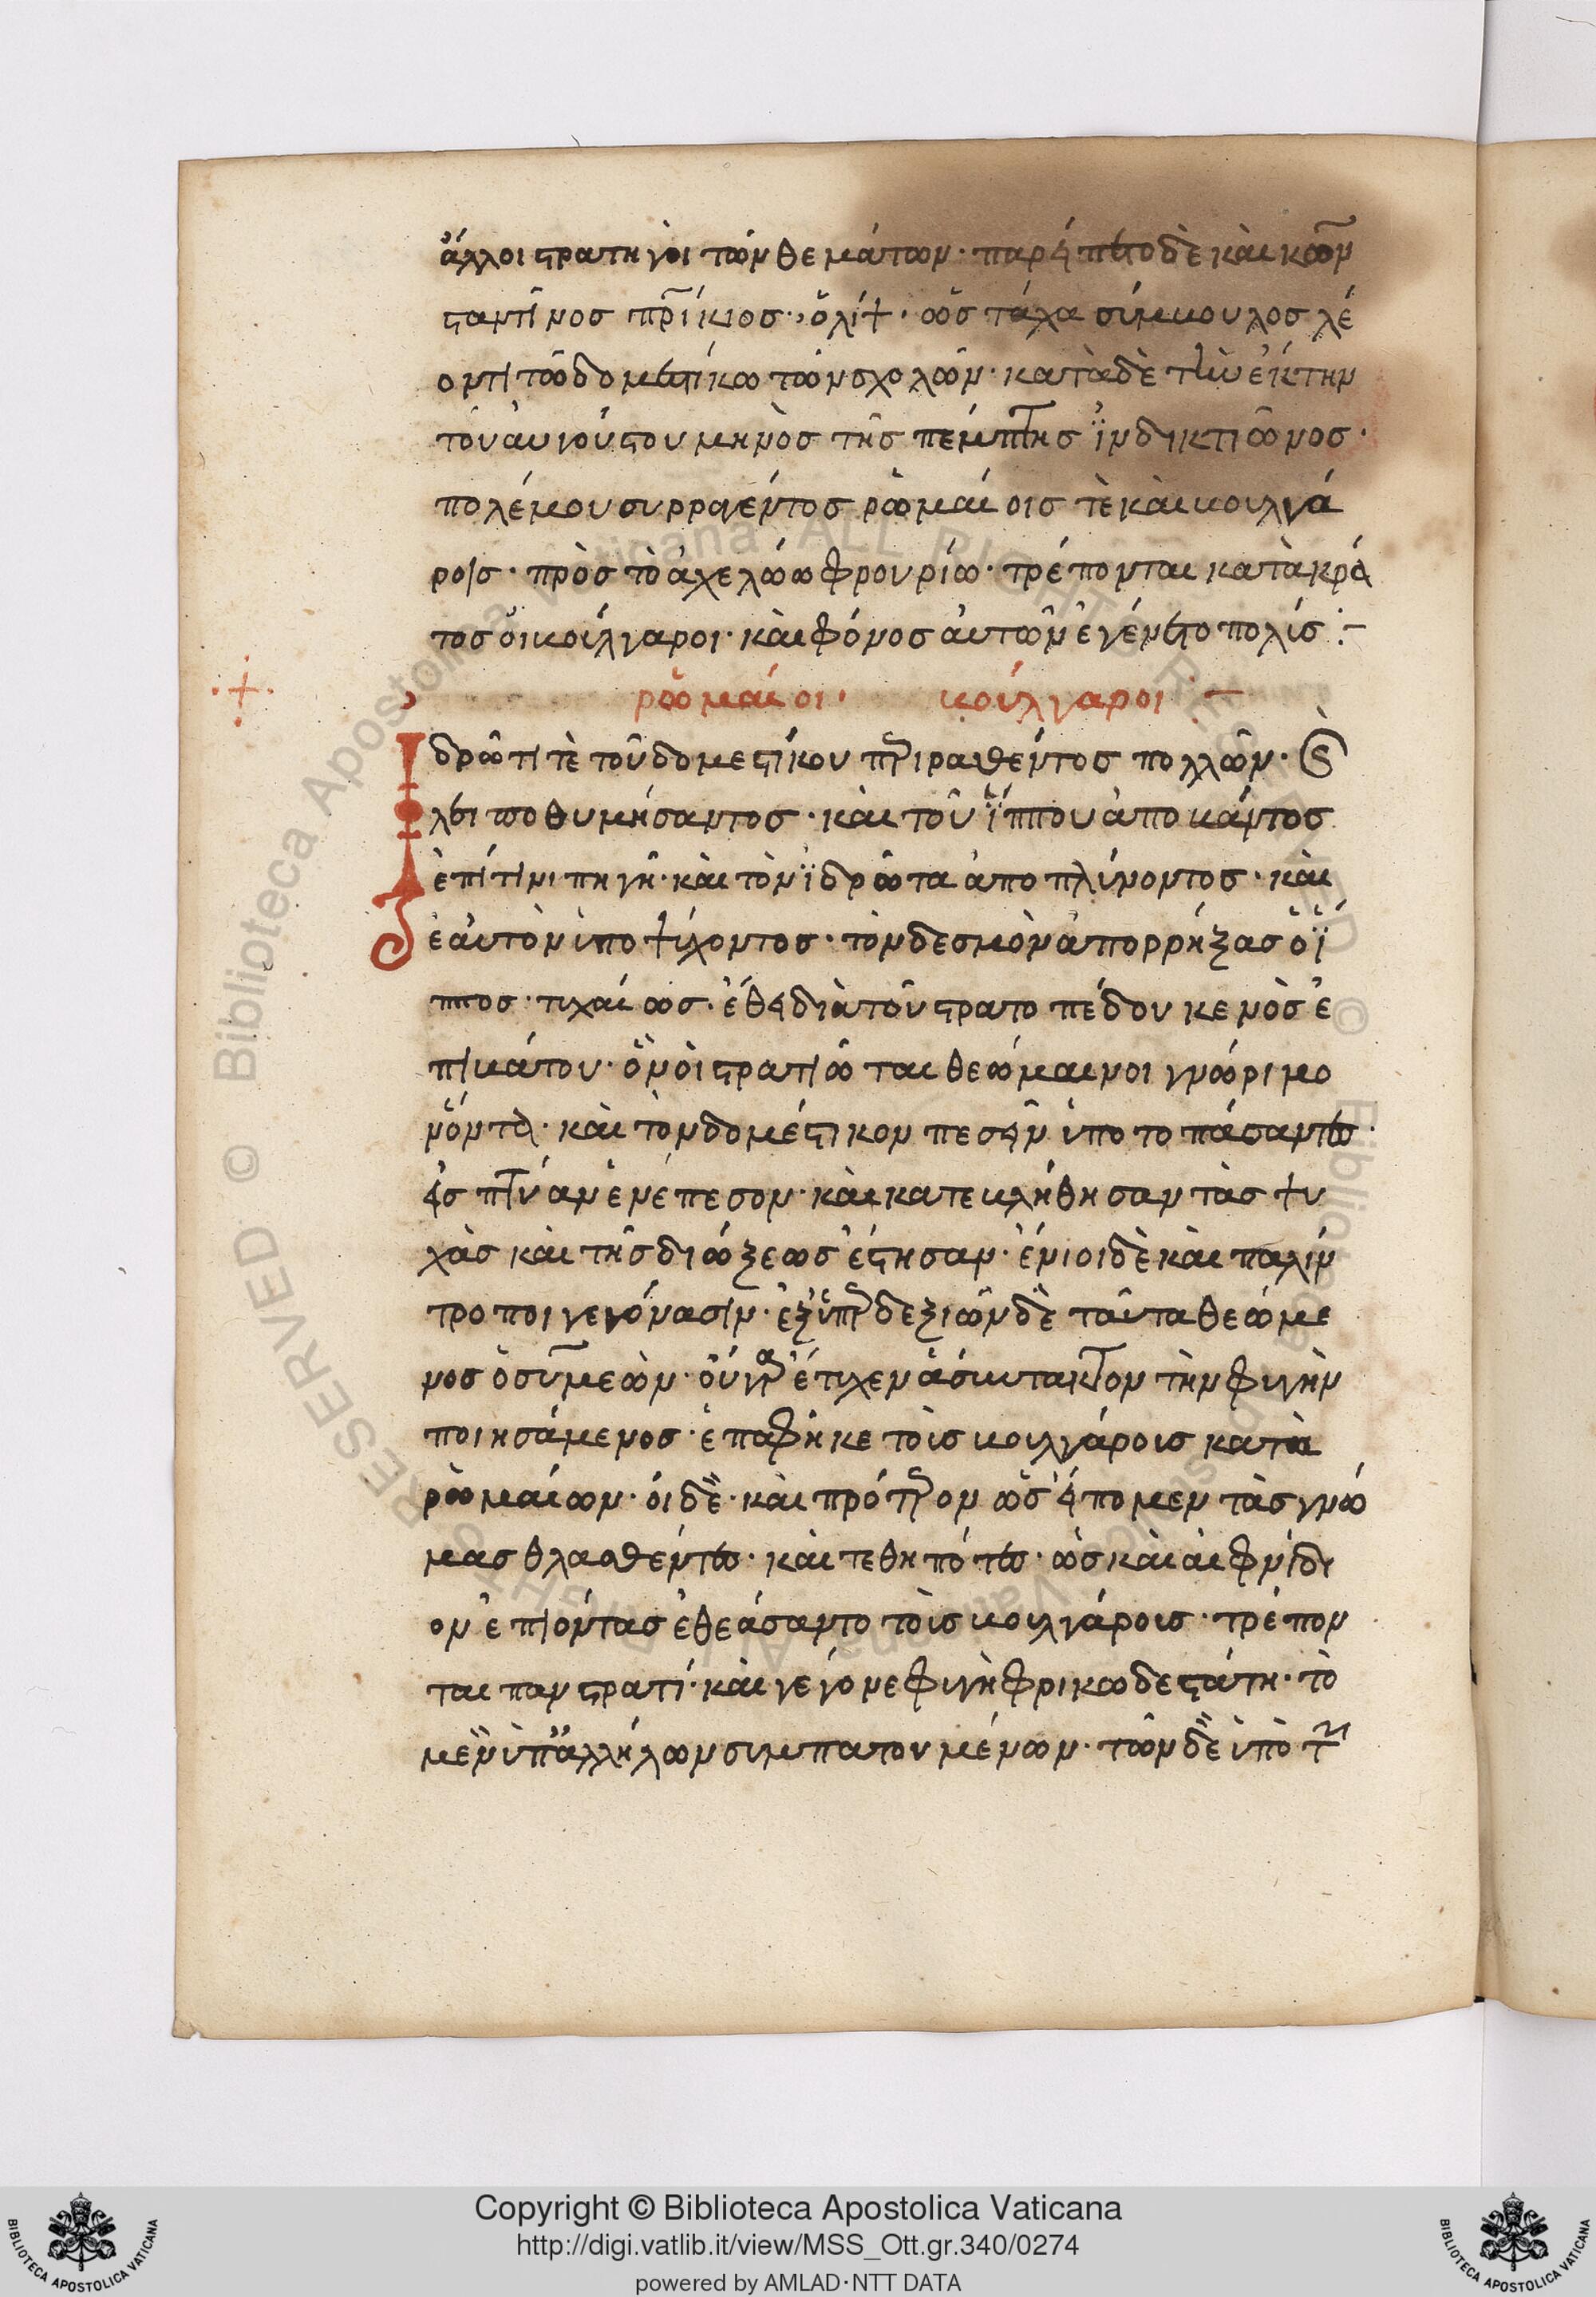 ἄλλοι στρατηγοὶ τῶν θεμάτων· παρείπετο δὲ καὶ κων
σταντῖνος πρίκιος· ὁ λίψ· ὡς τάχα σύμβουλος λέ
οντι τῶ δομεστίκω τῶν σχολῶν· κατὰ δὲ τὴν ἕκτην
τοῦ αυγούστου μηνὸς τῆς πέμπτης ϊνδικτιῶνος·
πολέμου συρραγέντος ρωμαίοις τὲ καὶ βουλγά
ροις· πρὸς τὸ ἀχελώω φρουρίω· τρέπονται κατὰ κρά
τος οἱ βούλγαροι· καὶ φόνος αὐτῶν ἐγένετο πολὺς :–
ρωμαίοι· βούλγαροι :–
Ιδρῶτι τὲ τοῦ δομεστίκου περιραθέντος πολλῶν· καὶ
λειποθυμήσαντος· καὶ τοῦ ἵππου ἀποβάντος
ἐπί τινι πηγῆ· καὶ τὸν ϊδρῶτα ἀποπλύνοντος· καὶ
ἑαυτὸν ὑποψύχοντος· τὸν δεσμὸν ἀπορρήξας ὁ ἵ
ππος· τυχαίως· ἔθει διὰ τοῦ στρατοπέδου κενὸς ἐ
πιβάτου· ὃν οἱ στρατιῶται θεώμαινοι γνώριμο
ν ὄντα· καὶ τὸν δομέστικον πεσεῖν ὑποτοπάσαντες·
εἰς πτύαν ἐνέπεσον· καὶ κατεκλήθησαν τὰς ψυ
χὰς καὶ τῆς διώξεως ἔστησαν· ἔνιοι δὲ καὶ παλίν
τροποι γεγόνασιν· ἐξ ὑπερδεξιῶν δὲ ταῦτα θεώμε
νος ὁ συμεὼν· οὐ γὰρ ἔτυχεν ἀσύντακτον τὴν φυγὴν
ποιησάμενος· ἐπαφῆκε τοῖς βουλγάροις κατὰ
ρωμαίων· οἱ δὲ· καὶ πρότερον ὡς εἴπομεν τὰς γνώ
μας θλασθέντες· καὶ τεθηπότες· ὡς καὶ αἰφνίδι
ον ἐπιόντας ἐθεάσαντο τοῖς βουλγάροις· τρέπον
ται πανστρατί· καὶ γέγονε φυγὴ φρικωδεστάτη· τὸ
μὲν ὑπ' ἀλλήλων συμπατουμένων· τῶν δὲ ὑπὸ τῶν
Copyright © Biblioteca Apostolica Vaticana
http://digi.vatlib.it/view/MSS_Ott.gr.340/0274
powered by AMLAD·NTT DATA